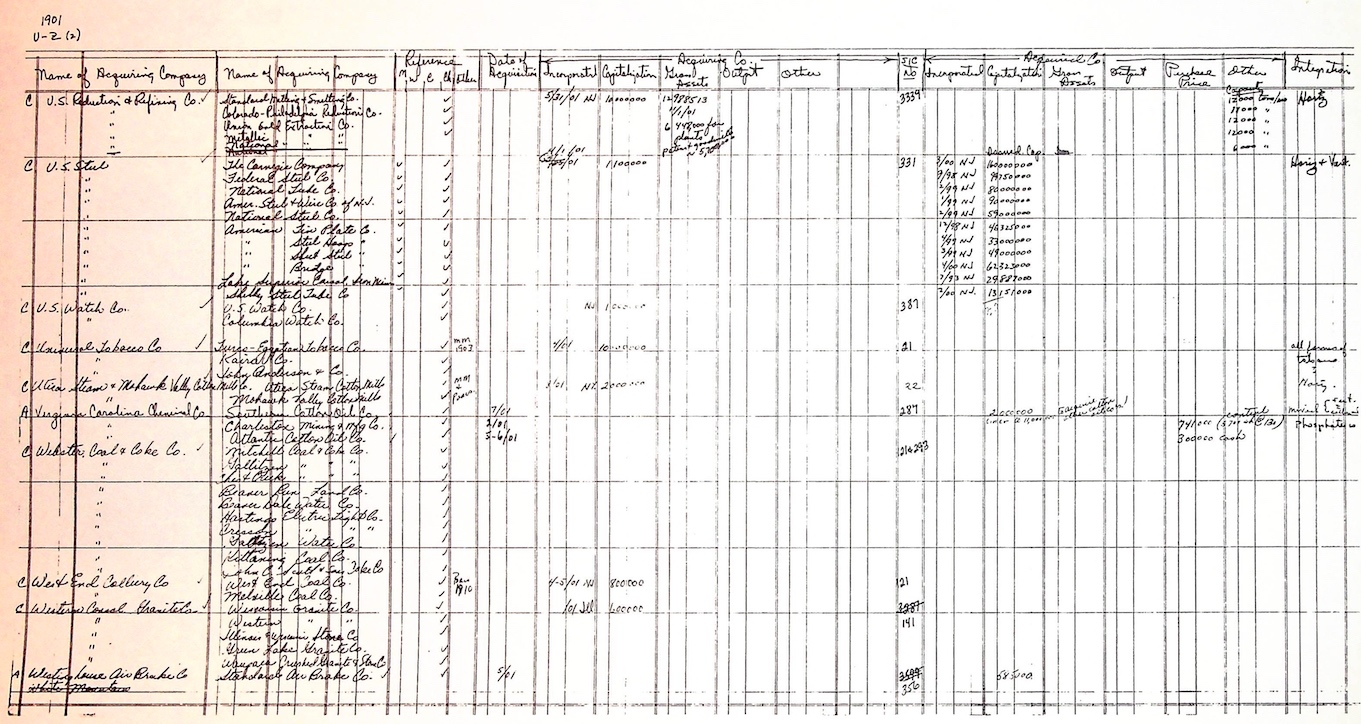 1901
U-Z (2)
Reference Date of Acquiring Co. SIC Acquired Co.
Name of Acquiring Company Name of Acquiring Company M, N, C, Ch, Other Acquisition Incorporated Capitalization Gross Assets Output Other No Incorporated Capitalization Gross Assets Output Purchase Price Other Integration
C U.S. Reduction & Refining Co. ✓ Standard Milling & Smelting Co. ✓ 5/31/01 NJ 10000000 12988513 3339 12000 tons/mo Horiz
" Colorado-Philadelphia Reduction Co. ✓ 7/1/01
" Union Gold Extraction Co. ✓ 6448000 for 12000 "
" Metallic " " " plants 12000 "
" National " " " 4/1/01 6000 "
C U.S. Steel ✓ The Carnegie Company ✓ ✓ 1100000 331 3/00 NJ 160000000 Horiz + Vert.
" Federal Steel Co. ✓ ✓ 9/98 NJ 99750000
" National Tube Co. ✓ ✓ 2/99 NJ 80000000
" Amer. Steel & Wire Co. of N.J. ✓ ✓ 1/99 NJ 90000000
" National Steel Co. ✓ ✓ 2/99 NJ 59000000
" American Tin Plate Co. ✓ ✓ 12/98 NJ 46325000
" " Steel Hoop " ✓ ✓ 4/99 NJ 33000000
" " Sheet Steel " ✓ ✓ 3/99 NJ 49000000
" " Bridge ✓ ✓ 4/00 NJ 62323000
" Lake Superior Consol. Iron Mines ✓ ✓ 7/93 NJ 29887000
" Shelby Steel Tube Co ✓ 2/00 NJ. 13151000
C U.S. Watch Co. ✓ U.S. Watch Co. ✓ NJ 387
" Columbia Watch Co. ✓
C Universal Tobacco Co ✓ Turco-Egyptian Tobacco Co. ✓ mm 1903 10000000 21 all forms of
" Kairo Co. ✓
" John Anderson & Co. ✓
C Utica Steam & Mohawk Valley Cotton Mills Co. Utica Steam Cotton Mills ✓ mm & 3/01 NY 2000000 22 Horiz.
" Mohawk Valley Cotton Mills ✓
A Virginia Carolina Chemical Co Southern Cotton Oil Co. ✓ 7/01 287 2000000
" Charleston Mining & Mfg Co. ✓ 2/01 control 741000 (5701 sh @ 130) Phosphate
" Atlantic Cotton Oil Co. ✓ 5-6/01 300000 cash
C Webster Coal & Coke Co. ✓ Mitchell Coal & Coke Co. ✓
" Gallitzin " " " ✓
" " " " ✓
" Beaver Run Land Co. ✓
" Beaver Dale Water Co. ✓
" Hastings Electric Light Co. ✓
" Cresson " " " ✓
" Gallitzin Water Co. ✓
" Kittaning Coal Co. ✓
" ✓
C West End Colliery Co ✓ West End Coal Co. ✓ 1910 4-5/01 NJ 800000 121
" Melville Coal Co. ✓
C Western Consol. Granite Co. ✓ Wisconsin Granite Co. ✓ /01 Ill 600000
" Western " " ✓ 141
" Illinois & Wisconsin Stone Co ✓
" Green Lake Granite Co. ✓
" Waupaca Crushed Granite & Stone Co ✓
A Westinghouse Air Brake Co Standard Air Brake Co. ✓ 5/01 585000
White Mountain 356